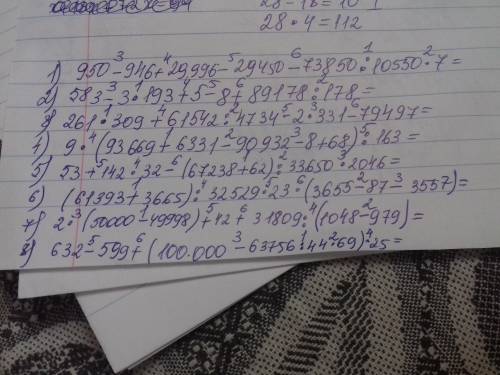 28-18=10
28·4=112
1) 950-³946+⁴29996-⁵29450-⁶73850:¹10550·²7=
2) 583-³3·¹193+⁴5-⁵8+⁶89178:²178=
3) 261·¹309+⁴61542:²4734-⁵2·³331-⁶79497=
4) 9·(93669+¹6331-²90932-³8+68):⁵163=
5) 53+⁵142·⁴32-⁶(67238+¹62):²33650·³2046=
6) (61393+¹3665):⁴32529·⁵23·⁶(3655-²87-³3557)=
7) 2·³(50000-¹49998)+⁵42+⁶31809:⁴(1048-²979)=
8) 632-⁵599+⁶(100.000-³63756:¹44·²69):⁴25=